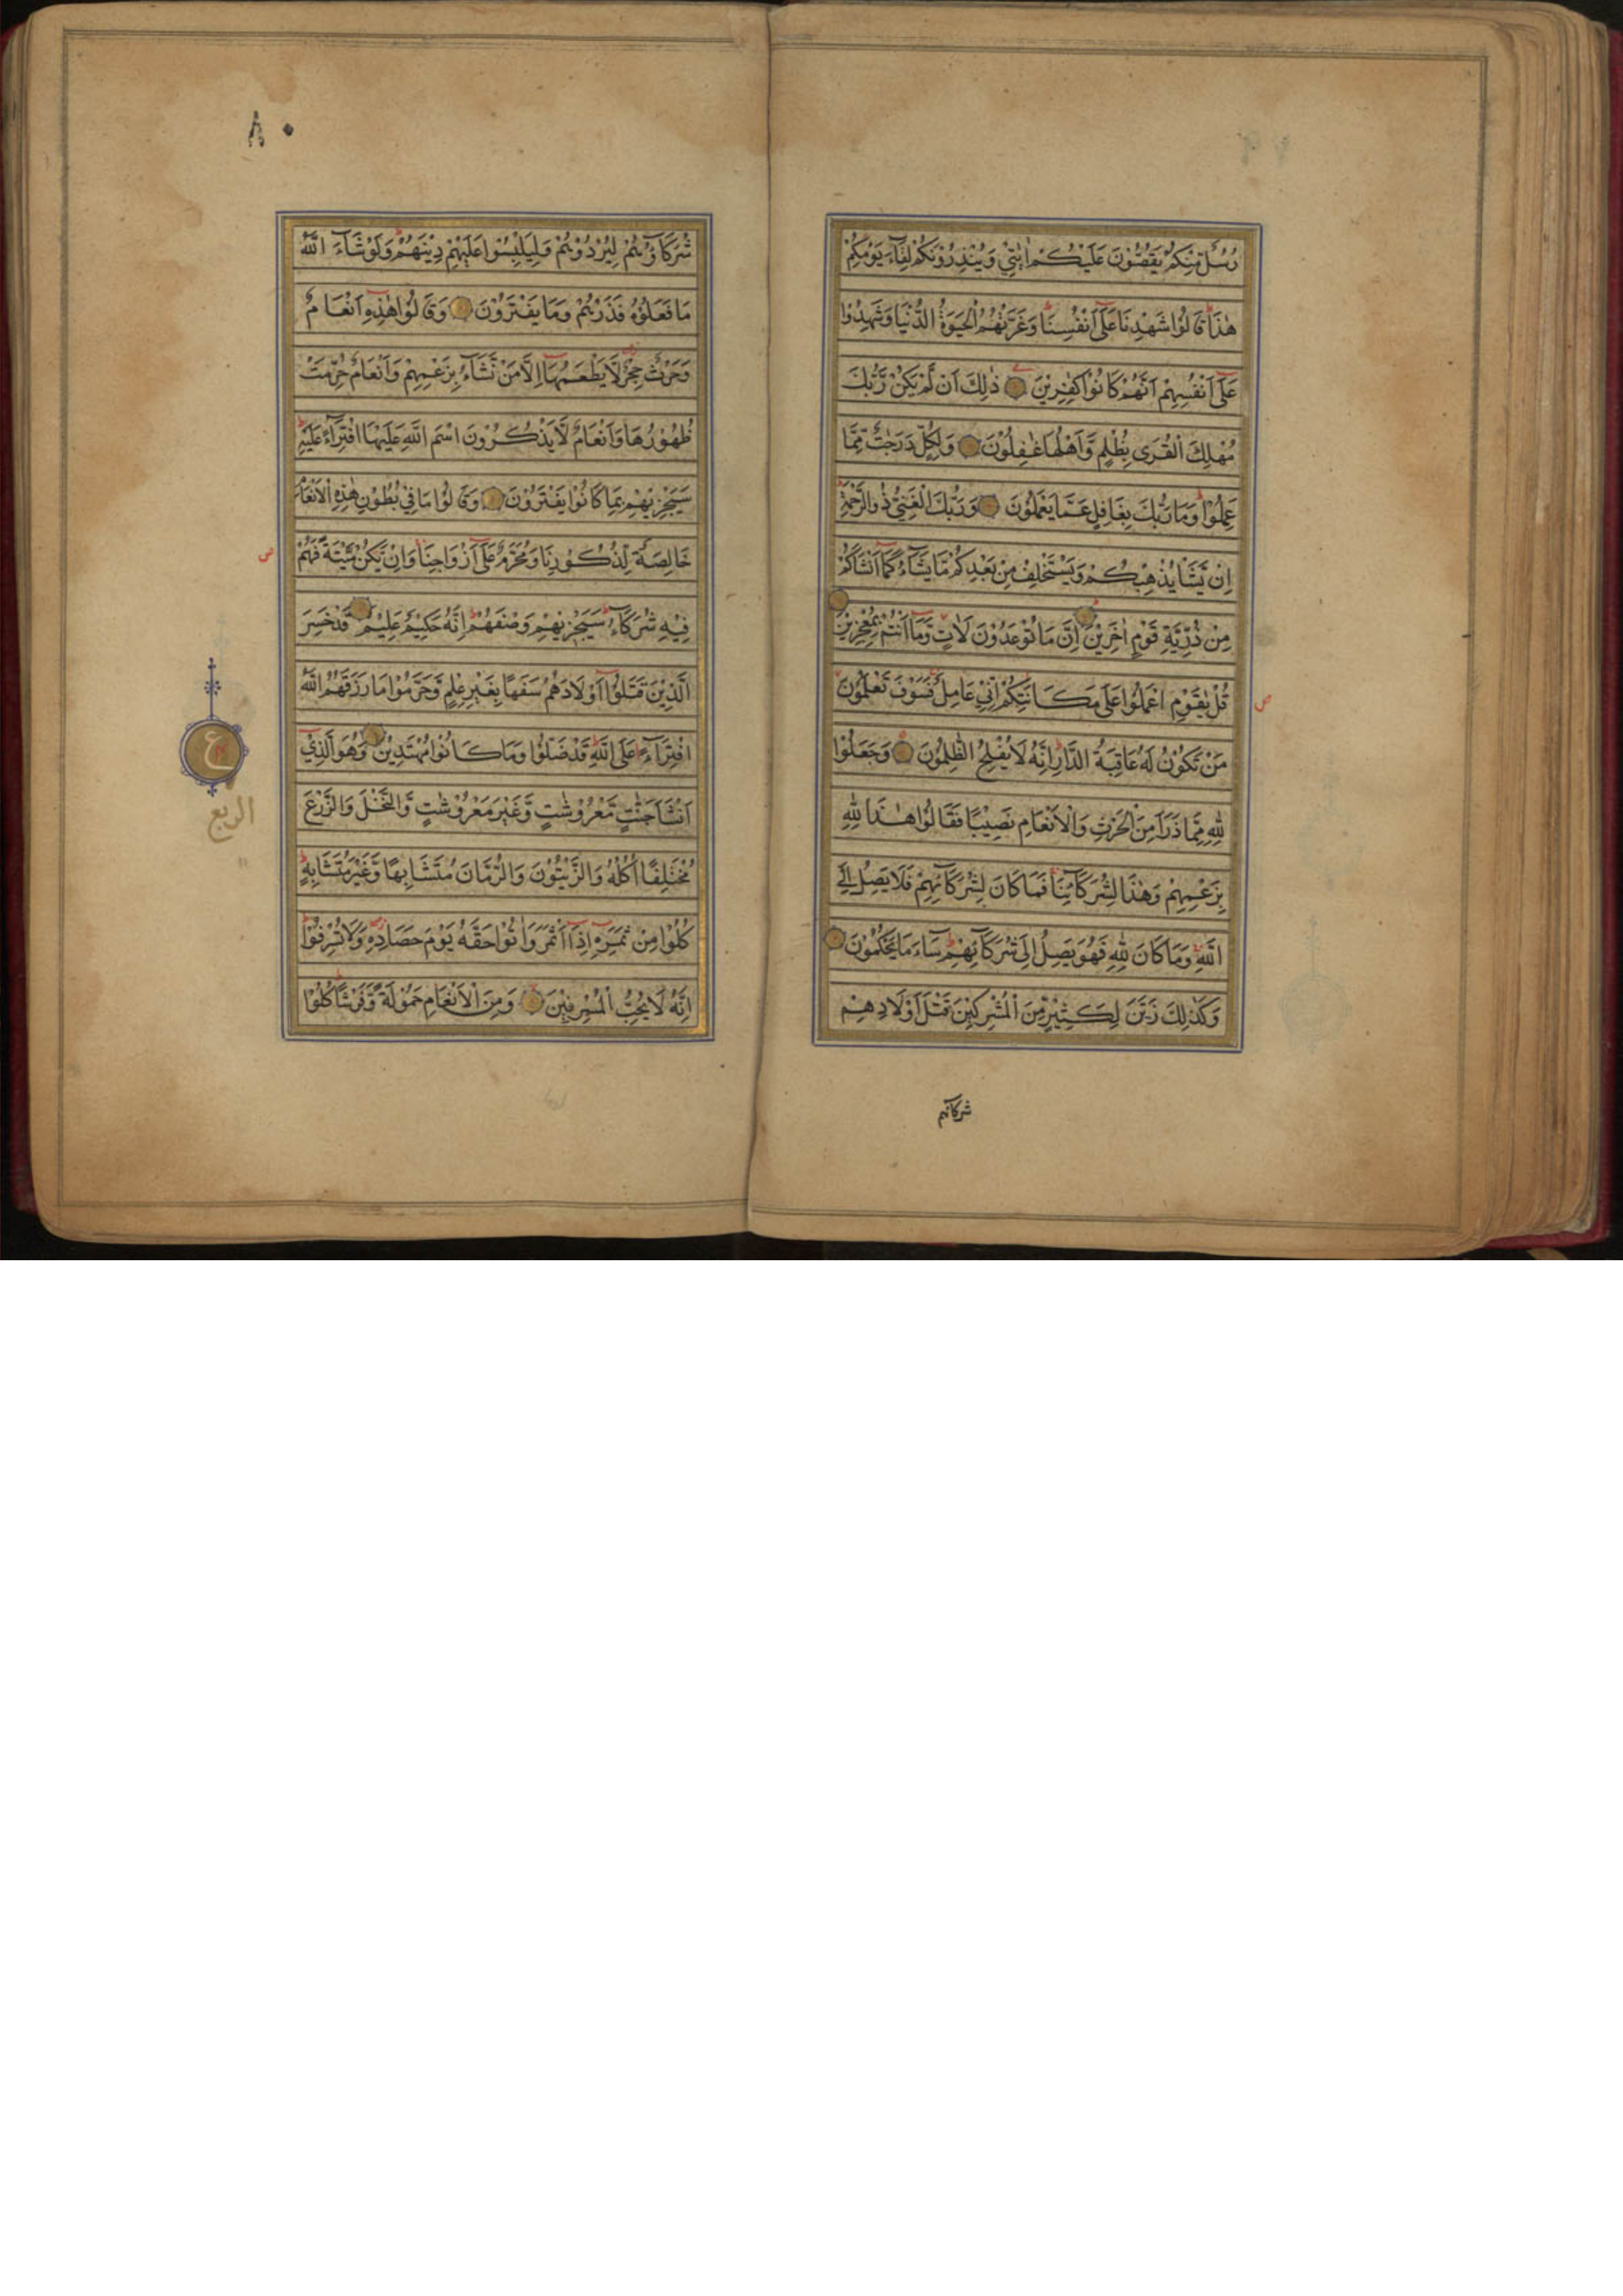 رُسُلٌ مِّنْكُمْ يَقُصُّوْنَ عَلَيْكُمْ اٰيٰتِيْ وَيُنْذِرُوْنَكُمْ لِقَآءَ يَوْمِكُمْ
هٰذَا قَالُوْا شَهِدْنَا عَلٰٓى اَنْفُسِنَا وَغَرَّتْهُمُ الْحَيٰوةُ الدُّنْيَا وَشَهِدُوْا
عَلٰٓى اَنْفُسِهِمْ اَنَّهُمْ كَانُوْا كٰفِرِيْنَ ذٰلِكَ اَنْ لَّمْ يَكُنْ رَّبُّكَ
مُهْلِكَ الْقُرٰى بِظُلْمٍ وَّاَهْلُهَا غٰفِلُوْنَ وَلِكُلٍّ دَرَجٰتٌ مِّمَّا
عَمِلُوْا وَمَا رَبُّكَ بِغَافِلٍ عَمَّا يَعْمَلُوْنَ وَرَبُّكَ الْغَنِيُّ ذُوالرَّحْمَةِ
اِنْ يَّشَاْ يُذْهِبْكُمْ وَيَسْتَخْلِفْ مِنْ بَعْدِكُمْ مَّا يَشَآءُ كَمَآ اَنْشَاَكُمْ
مِنْ ذُرِّيَّةِ قَوْمٍ اٰخَرِيْنَ اِنَّ مَا تُوْعَدُوْنَ لَاٰتٍ وَّمَآ اَنْتُمْ بِمُعْجِزِيْنَ
قُلْ يٰقَوْمِ اعْمَلُوْا عَلٰى مَكَانَتِكُمْ اِنِّيْ عَامِلٌ فَسَوْفَ تَعْلَمُوْنَ
ص
مَنْ تَكُوْنُ لَهٗ عَاقِبَةُ الدَّارِ اِنَّهٗ لَا يُفْلِحُ الظّٰلِمُوْنَ وَجَعَلُوْا
لِلّٰهِ مِمَّا ذَرَاَ مِنَ الْحَرْثِ وَالْاَنْعَامِ نَصِيْبًا فَقَالُوْا هٰذَا لِلّٰهِ
بِزَعْمِهِمْ وَهٰذَا لِشُرَكَآئِنَا فَمَا كَانَ لِشُرَكَآئِهِمْ فَلَا يَصِلُ اِلَى
اللّٰهِ وَمَا كَانَ لِلّٰهِ فَهُوَ يَصِلُ اِلٰى شُرَكَآئِهِمْ سَآءَ مَا يَحْكُمُوْنَ
وَكَذٰلِكَ زَيَّنَ لِكَثِيْرٍ مِّنَ الْمُشْرِكِيْنَ قَتْلَ اَوْلَادِهِمْ
شركائهم
٨٠
شُرَكَآؤُهُمْ لِيُرْدُوْهُمْ وَلِيَلْبِسُوْا عَلَيْهِمْ دِيْنَهُمْ وَلَوْ شَآءَ اللّٰهُ
مَا فَعَلُوْهُ فَذَرْهُمْ وَمَا يَفْتَرُوْنَ وَقَالُوْا هٰذِهٖٓ اَنْعَامٌ
وَحَرْثٌ حِجْرٌ لَّا يَطْعَمُهَآ اِلَّا مَنْ نَّشَآءُ بِزَعْمِهِمْ وَاَنْعَامٌ حُرِّمَتْ
ظُهُوْرُهَا وَاَنْعَامٌ لَّا يَذْكُرُوْنَ اسْمَ اللّٰهِ عَلَيْهَا افْتِرَآءً عَلَيْهِ
سَيَجْزِيْهِمْ بِمَا كَانُوْا يَفْتَرُوْنَ وَقَالُوْا مَا فِيْ بُطُوْنِ هٰذِهِ الْاَنْعَامِ
خَالِصَةٌ لِّذُكُوْرِنَا وَمُحَرَّمٌ عَلٰٓى اَزْوَاجِنَا وَاِنْ يَّكُنْ مَّيْتَةً فَهُمْ
ص
فِيْهِ شُرَكَآءُ سَيَجْزِيْهِمْ وَصْفَهُمْ اِنَّهٗ حَكِيْمٌ عَلِيْمٌ قَدْ خَسِرَ
الَّذِيْنَ قَتَلُوْٓا اَوْلَادَهُمْ سَفَهًا بِغَيْرِ عِلْمٍ وَّحَرَّمُوْا مَا رَزَقَهُمُ اللّٰهُ
افْتِرَآءً عَلَى اللّٰهِ قَدْ ضَلُّوْا وَمَا كَانُوْا مُهْتَدِيْنَ وَهُوَ الَّذِيْٓ
ع
اَنْشَاَ جَنّٰتٍ مَّعْرُوْشٰتٍ وَّغَيْرَ مَعْرُوْشٰتٍ وَّالنَّخْلَ وَالزَّرْعَ
الربع
مُخْتَلِفًا اُكُلُهٗ وَالزَّيْتُوْنَ وَالرُّمَّانَ مُتَشَابِهًا وَّغَيْرَ مُتَشَابِهٍ
كُلُوْا مِنْ ثَمَرِهٖٓ اِذَآ اَثْمَرَ وَاٰتُوْا حَقَّهٗ يَوْمَ حَصَادِهٖ وَلَا تُسْرِفُوْا
اِنَّهٗ لَا يُحِبُّ الْمُسْرِفِيْنَ وَمِنَ الْاَنْعَامِ حَمُوْلَةً وَّفَرْشًا كُلُوْا